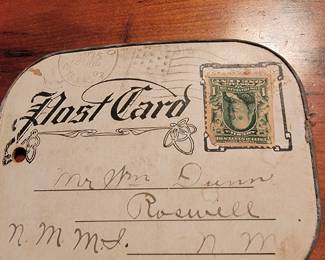 Post Card
Mr Wm Dunn
Roswell
N. M. M. I. N M